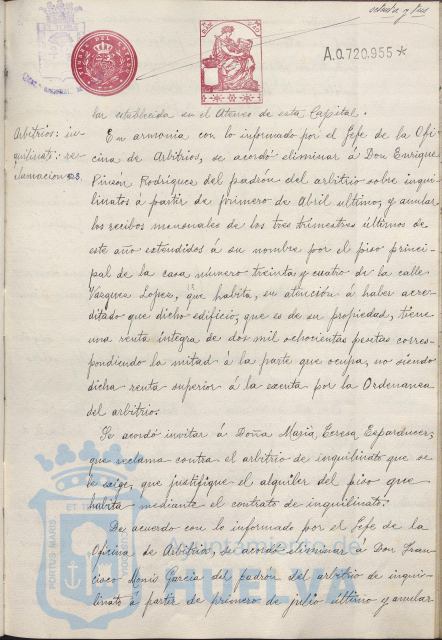 setenta y tres
A.0.720.955*
lar establecida en el Ateneo de esta Capital.
Arbitrios: in-
quilinato: re-
clamaciones.
En armonia con lo informado por el Jefe de la Ofi-
cina de Arbitrios, se acordó eliminar á Don Enrique
Pinzón Rodriguez del padrón del arbitrio sobre inqui-
linatos á partir de primero de Abril ultimo, y anular
los recibos mensuales de los tres trimestres últimos de
este año extendidos á su nombre por el piso princi-
pal de la casa número treinta y cuatro de la calle
Vazquez Lopez, que habita, en atención á haber acre-
ditado que dicho edificio, que es de su propiedad, tiene
una renta integra de dos mil ochocientas pesetas corres-
pondiendo la mitad á la parte que ocupa, no siendo
dicha renta superior á la exenta por la Ordenanza
del arbitrio.
Se acordó invitar á Doña Maria Teresa
que reclama contra el arbitrio de inquilinato que se
le exige, que justifique el alquiler del piso que
habita mediante el contrato de inquilinato.
De acuerdo con lo informado por el Jefe de la
Oficina de Arbitrios, se acordó eliminar á Don Fran-
cisco Monis Garcia del padrón del arbitrio de inqui-
linato á partir de primero de julio último y anular
Ayuntamiento de
HUELVA
PORTUS MARIS